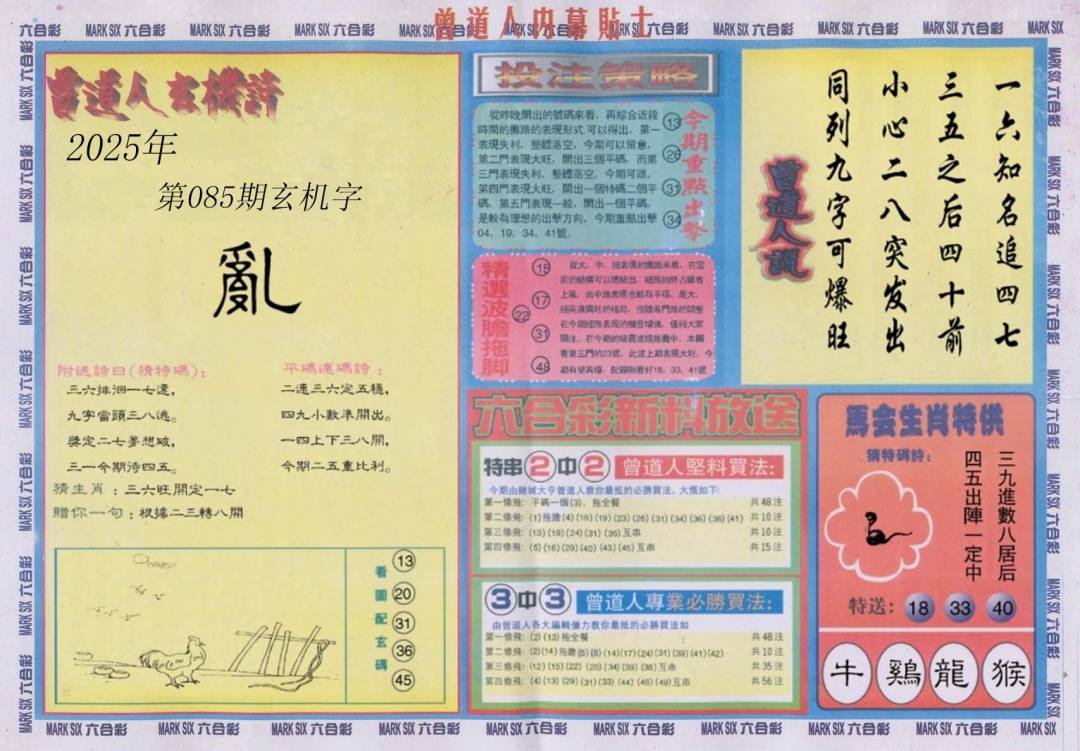 曾道人内幕貼士
MARK SIX 六合彩
曾道人玄機詩
2025年
第085期玄机字
亂
附送詩曰(猜特碼)：
三六排徊一七邊，
九字當頭三八逃。
獎定二七夢想破，
三一今期待四五。
猜生肖：三六旺開定一七
贈你一句：根據二三轉八開
平碼連碼詩：
二連三六定五穩，
四九小數準開出。
一四上下三八開，
今期二五重比利。
看圖配玄碼
13
20
31
36
45
投注策略
從昨晚開出的號碼來看，再綜合近段
時間的攤路的表現形式，可以得出，第一
表現失利，整體落空，今期可以留意，
第二門表現大旺，開出三個平碼，而第
三門表現失利，整體落空，今期可跟，
第四門表現大旺，開出一個特碼二個平
碼，第五門表現一般，開出一個平碼，
是較為理想的出擊方向，今期重點出擊
04，19，34，41號。
13
26
31
34
今期重點出擊
精選波膽拖脚
18
17
22
31
48
六合彩新料放送
特串2中2 曾道人堅料買法：
今期由賭城大亨曾道人教你最抵的必勝買法，大慨如下：
第一條飛：平碼一個(3)，拖全餐 共48注
第二條飛：(1)拖膽(4)(16)(19)(23)(26)(31)(34)(36)(36)(41) 共10注
第三條飛：(13)(19)(24)(31)(36)互串 共10注
第四條飛：(5)(16)(29)(40)(43)(45)互串 共15注
3中3 曾道人專業必勝買法：
由曾道人各大編輯傾力教你最抵的必勝買法如
第一條飛：(2)(13)拖全餐 共48注
第二條飛：(2)(14)拖膽(5)(8)(14)(17)(24)(31)(39)(41)(42) 共10注
第三條飛：(12)(15)(22)(20)(34)(39)(36)互串 共35注
第四條飛：(4)(13)(29)(31)(33)(44)(46)(49)互串 共56注
一六知名追四七
三五之后四十前
小心二八突发出
同列九字可爆旺
曾道人說
馬会生肖特供
猜特碼詩：
三九進數八居后
四五出陣一定中
特送：18 33 40
牛 鷄 龍 猴
MARK SIX 六合彩